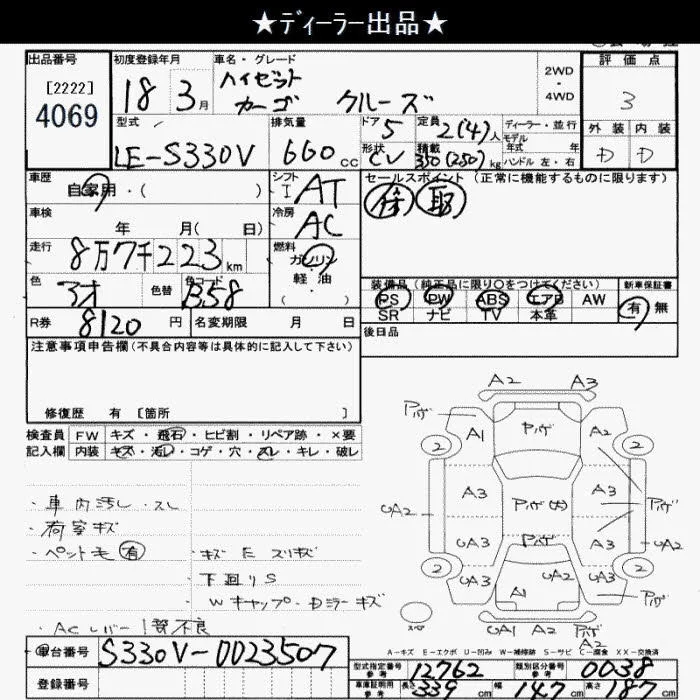 ★ディーラー出品★
出品番号 初度登録年月 車名・グレード 評価点
[2222]
4069
18 3月
ハイゼット
カーゴ クルーズ
2WD
・
4WD
3
型式 排気量 ドア 定員 ディーラー・並行
LE-S330V 660cc 5 2(4)人
モデル年式 年
形状 積載 ハンドル 左・右
CV 350(250)kg
外装 内装
D D
車歴 自家用・( )
シフト I AT
セールスポイント(正常に機能するものに限ります)
車検 年 月( 日)
冷房 AC
走行 8万7千223km
燃料 ガソリン・軽油・
色 色替 色コード B58
装備品(純正品に限り○をつけてください) 新車保証書
PS PW ABS エアB AW
SR ナビ TV 本革
有 無
R券 8120円 名変期限 月 日
後日品
注意事項申告欄(不具合内容等は具体的に記入して下さい)
修復歴 有 [箇所 ]
検査員 FW キズ・飛石・ヒビ割・リペア跡・×要
記入欄 内装 キズ・汚レ・コゲ・穴・スレ・キレ・破レ
・車内汚し・スレ
・荷室キズ
・ペット毛 有
・下廻りS
・Wキャップ・Dミラーキズ
・ACレバー1箇不良
A2 A3
A1 A2
2 2
A3 A3
UA2
UA3 A3
UA2
2 2
A1 UA2 UA3
UA1 A2 UA2
A2
A-キズ E-エクボ U-凹み W-補修跡 S-サビ C-腐食 XX-交換済
車台番号 S330V-0023507
登録番号
型式指定番号 参考 12762 類別区分番号 参考 0038
車庫証明用 参考 長さ 339cm 幅 147cm 高さ 187cm